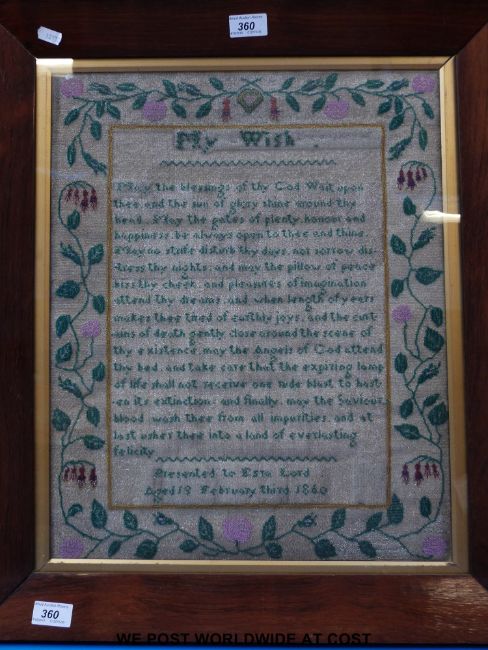 360
My Wish
May the blessings of thy God Wait upon
thee and the sun of glory shine around thy
head May the gates of plenty honour and
happiness be always open to thee and thine
May no strife disturb thy days, nor sorrow dis-
tress thy nights, and may the pillow of peace
kiss thy cheek, and pleasures of imagination
attend thy dreams, and when length of years
makes thee tired of earthly joys, and the curt-
ains of death gently close around the scene of
thy existence, may the Angels of God attend
thy bed, and take care that the expiring lamp
of life shall not receive one rude blast to hast-
en its extinction and finally, may the Saviour's
blood wash thee from all impurities, and at
last usher thee into a land of everlasting
felicity
Presented to Lord
Aged 18 February third 1860
360
WE POST WORLDWIDE AT COST